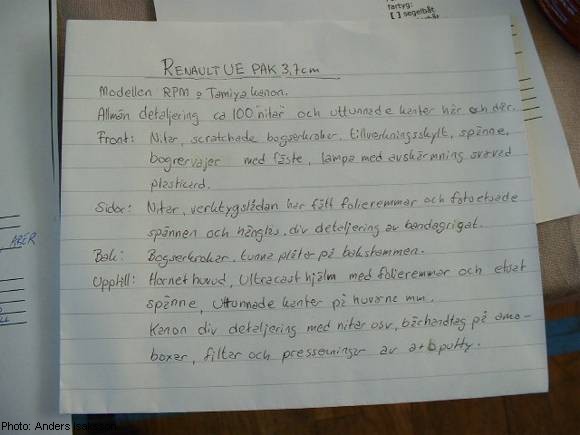 fartyg:
[ ] segelbåt
RENAULT UE PAK 3,7cm
Modellen RPM o Tamiya kanon.
Allmän detaljering ca 100 nitar och uttunnade kanter här och där.
Front: Nitar, scratchade bogserkrokar, tillverkningsskylt, spänne,
bogservajer med fäste, lampa med avskärmning svarvad
plasticard.
Sidor: Nitar, verktygslådan har fått folieremmar och fotoetsade
spännen och hänglås, div detaljering av bandaggregat.
Bak: Bogserkrokar, tunna plåtar på bakstammen.
Upptill: Hornet huvud, Ultracast hjälm med folieremmar och etsat
spänne, Uttunnade kanter på huvarna mm.
Kanon div detaljering med nitar osv, bärhandtag på ammo-
boxar, filtar och presenningar av a+b putty.
Photo: Anders Isaksson